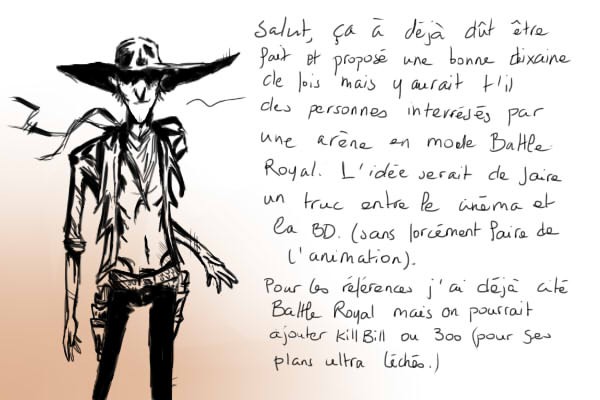 Salut, ça à déjà dût être
fait et proposé une bonne dixaine
de fois mais y aurait t'il
des personnes interrésés par
une arène en mode Battle
Royal. L'idée serait de faire
un truc entre le cinéma et
la BD. (sans forcément faire de
l'animation).
Pour les références j'ai déjà cité
Battle Royal mais on pourrait
ajouter Kill Bill ou 300 (pour ses
plans ultra léchés.)